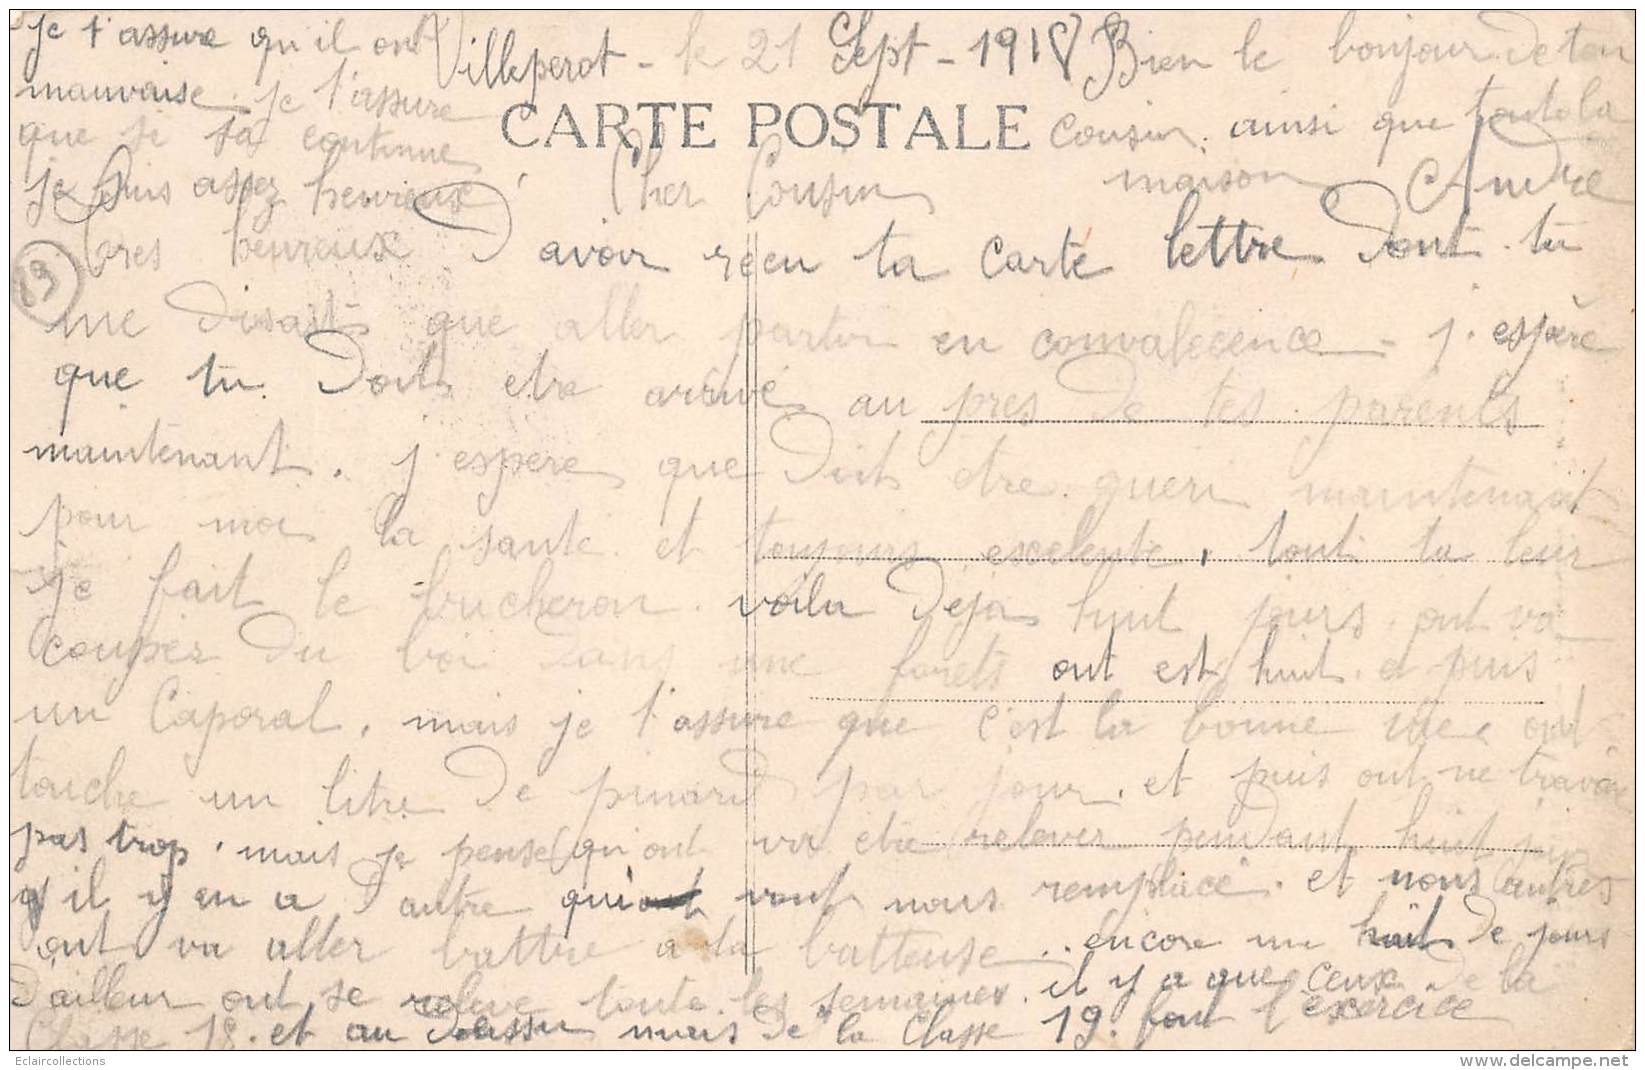 Villeperot - le 21 Sept - 1918
CARTE POSTALE
Cher Cousin
D'avoir reçu ta carte lettre dont tu
me disait que aller partir en convalecence - j'espère
que tu doit etre arrivé au pres de tes parents
maintenant. j'espère que doit etre gueri maintenant
pour moi la santé et toujours exelente, tout ta leur
je fait le bucheron. voila deja huit jours ont va
couper du boi dans une forets ont est huit et puis
un Caporal, mais je t'assure que c'est la bonne vie ont
touche un litre de pinard par jour. et puis ont ne travaie
pas trop. mais je pense qu'ont va etre relever pendant huit jour
q'il y en a d'autre qui vont nous remplacé. et nous autres
ont va aller battre a la batteuse.. encore un huit de jours
d'ailleur ont se releve toute les semaines. il y a que ceux de la
Classe 18. et au dessu mais de la Classe 19. font l'exercice
je t'assure qu'il ont
mauvaise. je t'assure
que si sa continue
je suis assez heureux
tres heureux
Bien le bonjour de ton
cousin. ainsi que toute la
maison André
89
Eclaircollections
www.delcampe.net